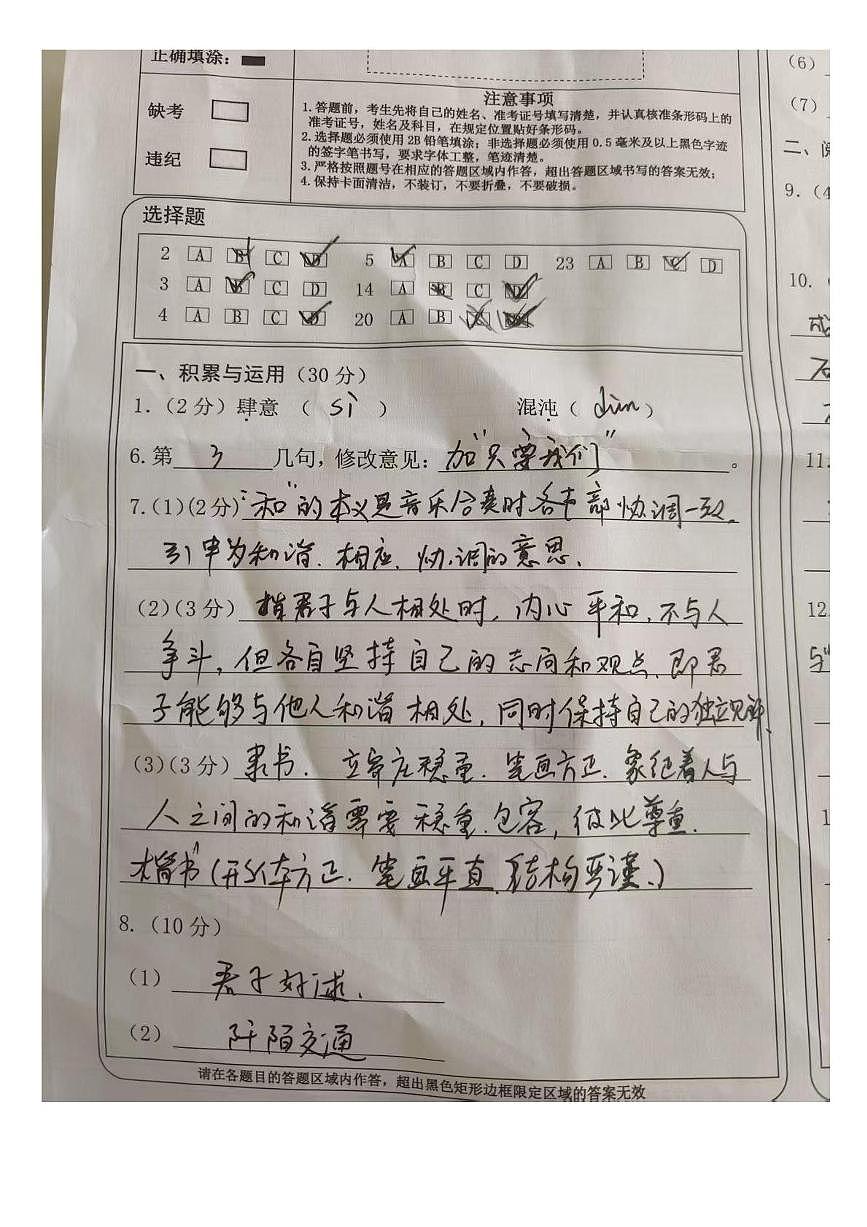 正确填涂：
缺考
违纪
注意事项
1.答题前，考生先将自己的姓名、准考证号填写清楚，并认真核准条形码上的
准考证号，姓名及科目，在规定位置贴好条形码。
2.选择题必须使用 2B 铅笔填涂；非选择题必须使用 0.5 毫米及以上黑色字迹
的签字笔书写，要求字体工整，笔迹清楚。
3.严格按照题号在相应的答题区域内作答，超出答题区域书写的答案无效；
4.保持卡面清洁，不装订，不要折叠，不要破损。
选择题
2 A B C D 5 A B C D 23 A B C D
3 A B C D 14 A B C D
4 A B C D 20 A B C D
一、积累与运用（30 分）
1.（2 分）肆意 （ sì ） 混沌（ dùn ）
6.第 3 几句，修改意见：加"只要我们"。
7.(1)(2分)"和"的本义是音乐合奏时各声部协调一致，
引申为和谐、相应、协调的意思。
(2)(3 分) 指君子与人相处时，内心平和，不与人
争斗，但各自坚持自己的志向和观点，即君
子能够与他人和谐相处，同时保持自己的独立见解。
(3)(3 分) 隶书. 笔画方正. 象征着人与
人之间的和谐需要稳重.包容，彼此尊重.
楷书(形体方正. 笔画平直.结构严谨.)
8.（10 分）
(1) 君子好逑.
(2) 阡陌交通
请在各题目的答题区域内作答，超出黑色矩形边框限定区域的答案无效
(6)
(7)
二、阅
9.(4
10.
成
11.
12
与
1